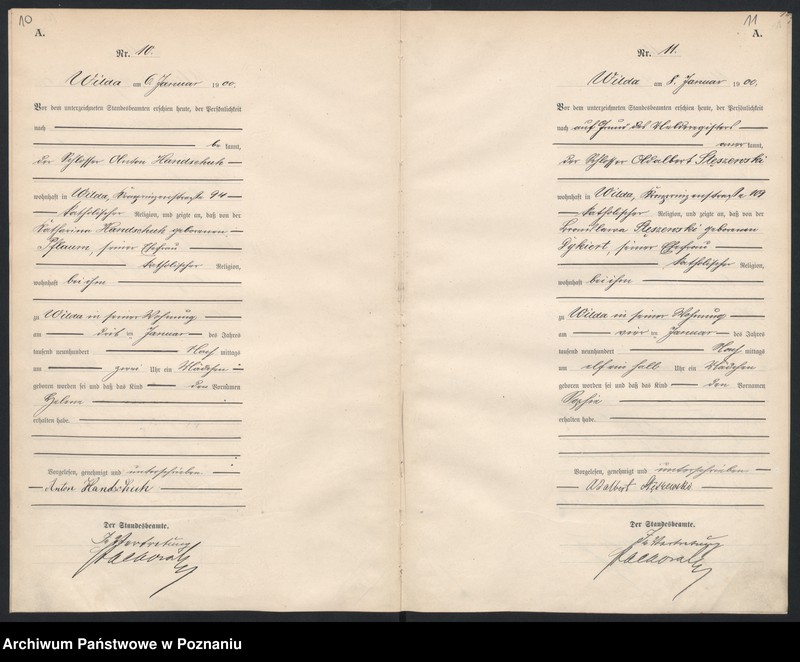 10
A.
Nr. 10.
Wilda am 6. Januar 1900.
Vor dem unterzeichneten Standesbeamten erschien heute, der Persönlichkeit
nach
be kannt,
der Schlosser Anton Handschuh
wohnhaft in Wilda, 94
katholischer Religion, und zeigte an, daß von der
Katharina Handschuh geborenen
Pflaum, seiner Ehefrau
katholischer Religion,
wohnhaft bei ihm
zu Wilda in seiner Wohnung
am drit ten Januar des Jahres
tausend neunhundert Nach mittags
um zwei Uhr ein Mädchen
geboren worden sei und daß das Kind den Vornamen
Helene
erhalten habe.
Vorgelesen, genehmigt und unterschrieben
Anton Handschuh
Der Standesbeamte.
In Vertretung
11
A.
Nr. 11.
Wilda am 8. Januar 1900.
Vor dem unterzeichneten Standesbeamten erschien heute, der Persönlichkeit
nach auf Grund des Melderegisters
aner kannt,
der Schlosser Adalbert Stęszewski
wohnhaft in Wilda, 109
katholischer Religion, und zeigte an, daß von der
Stęszewski geborenen
Dykiert, seiner Ehefrau
katholischer Religion,
wohnhaft bei ihm
zu Wilda in seiner Wohnung
am vier ten Januar des Jahres
tausend neunhundert Nach mittags
um elf ein halb Uhr ein Mädchen
geboren worden sei und daß das Kind den Vornamen
Sophie
erhalten habe.
Vorgelesen, genehmigt und unterschrieben
Adalbert Stęszewski
Der Standesbeamte.
In Vertretung
Archiwum Państwowe w Poznaniu